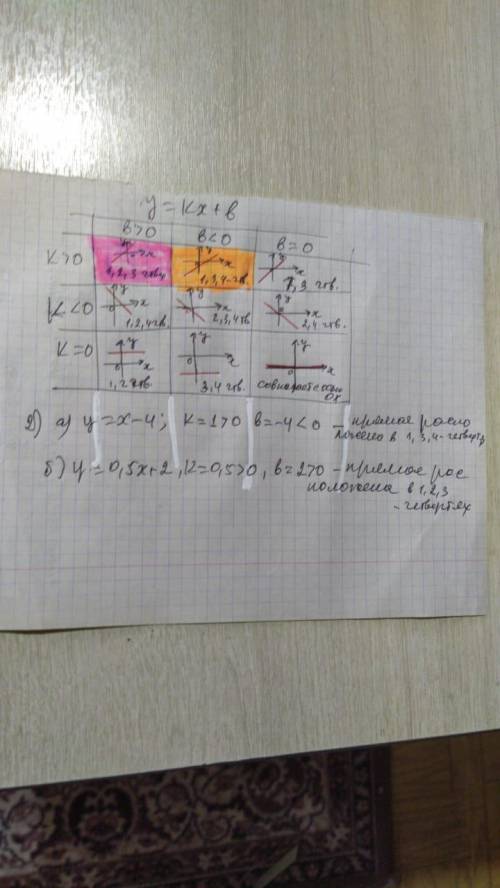 y = kx + b
b>0 b<0 b=0
k>0 1,2,3 четв. 1,3,4-четв. 1,3 четв.
k<0 1,2,4 чв. 2,3,4 чв. 2,4 чв.
k=0 1,2 чтв. 3,4 чтв. совпадает с осью ОХ
2) а) y = x-4; k=1>0 b=-4<0 - прямая распо
ложена в 1,3,4-четверт
б) y = 0,5x+2, k=0,5>0, b=2>0 - прямая рас
положена в 1,2,3
- четвертях